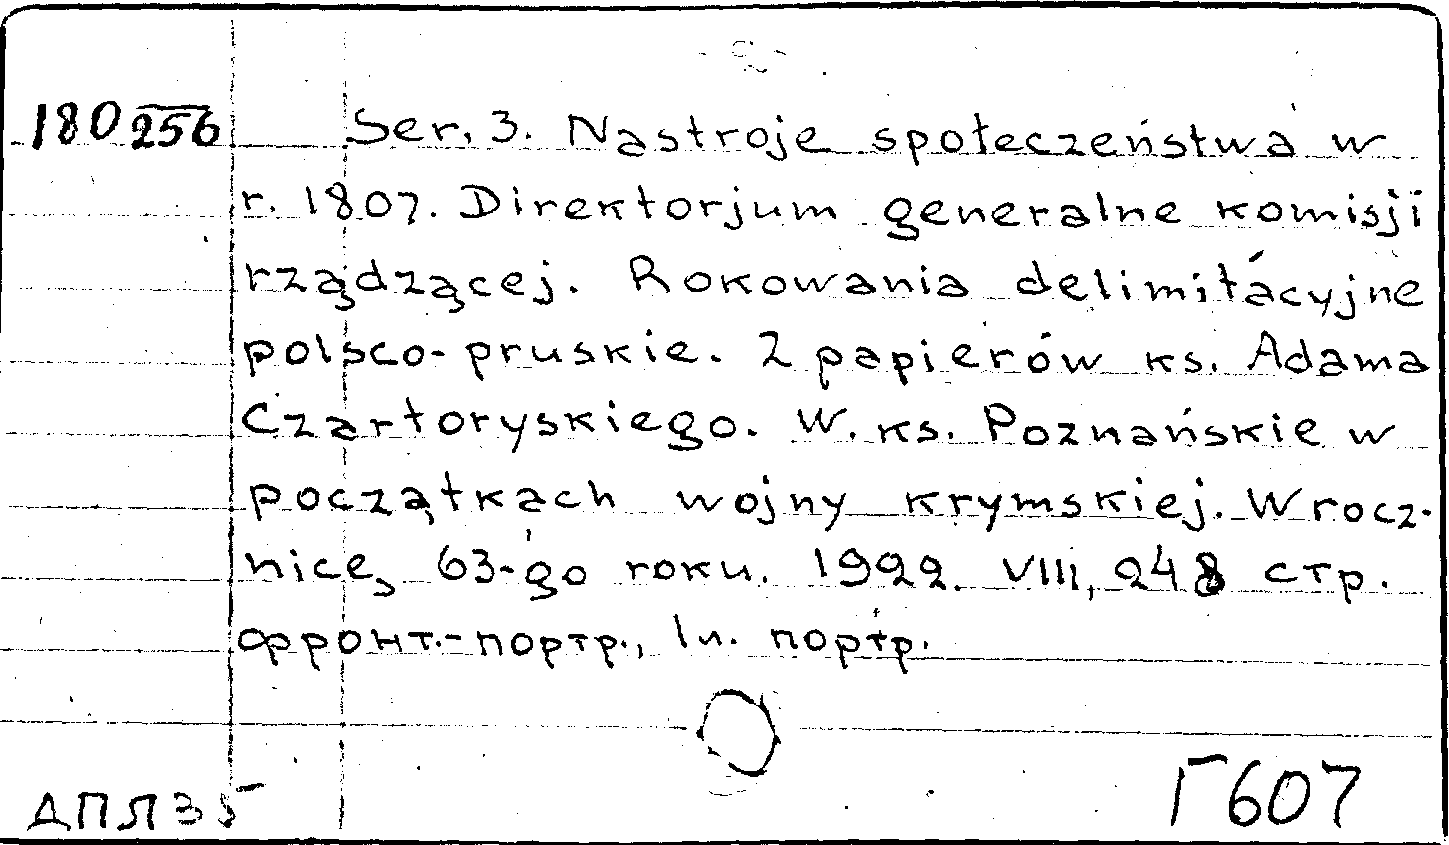 180256 Ser. 3. Nastroje społeczeństwa w
r. 1807. Direktorjum generalne komisji
rządzącej. Rokowania delimitacyjne
polsco-pruskie. Z papierów ks. Adama
Czartoryskiego. W. ks. Poznańskie w
początkach wojny krymskiej. Wrocz-
nicę 63-go roku. 1922. VIII, 248 стр.
фронт.-портр., 1 л. портр.
ДПЛ35
Г607